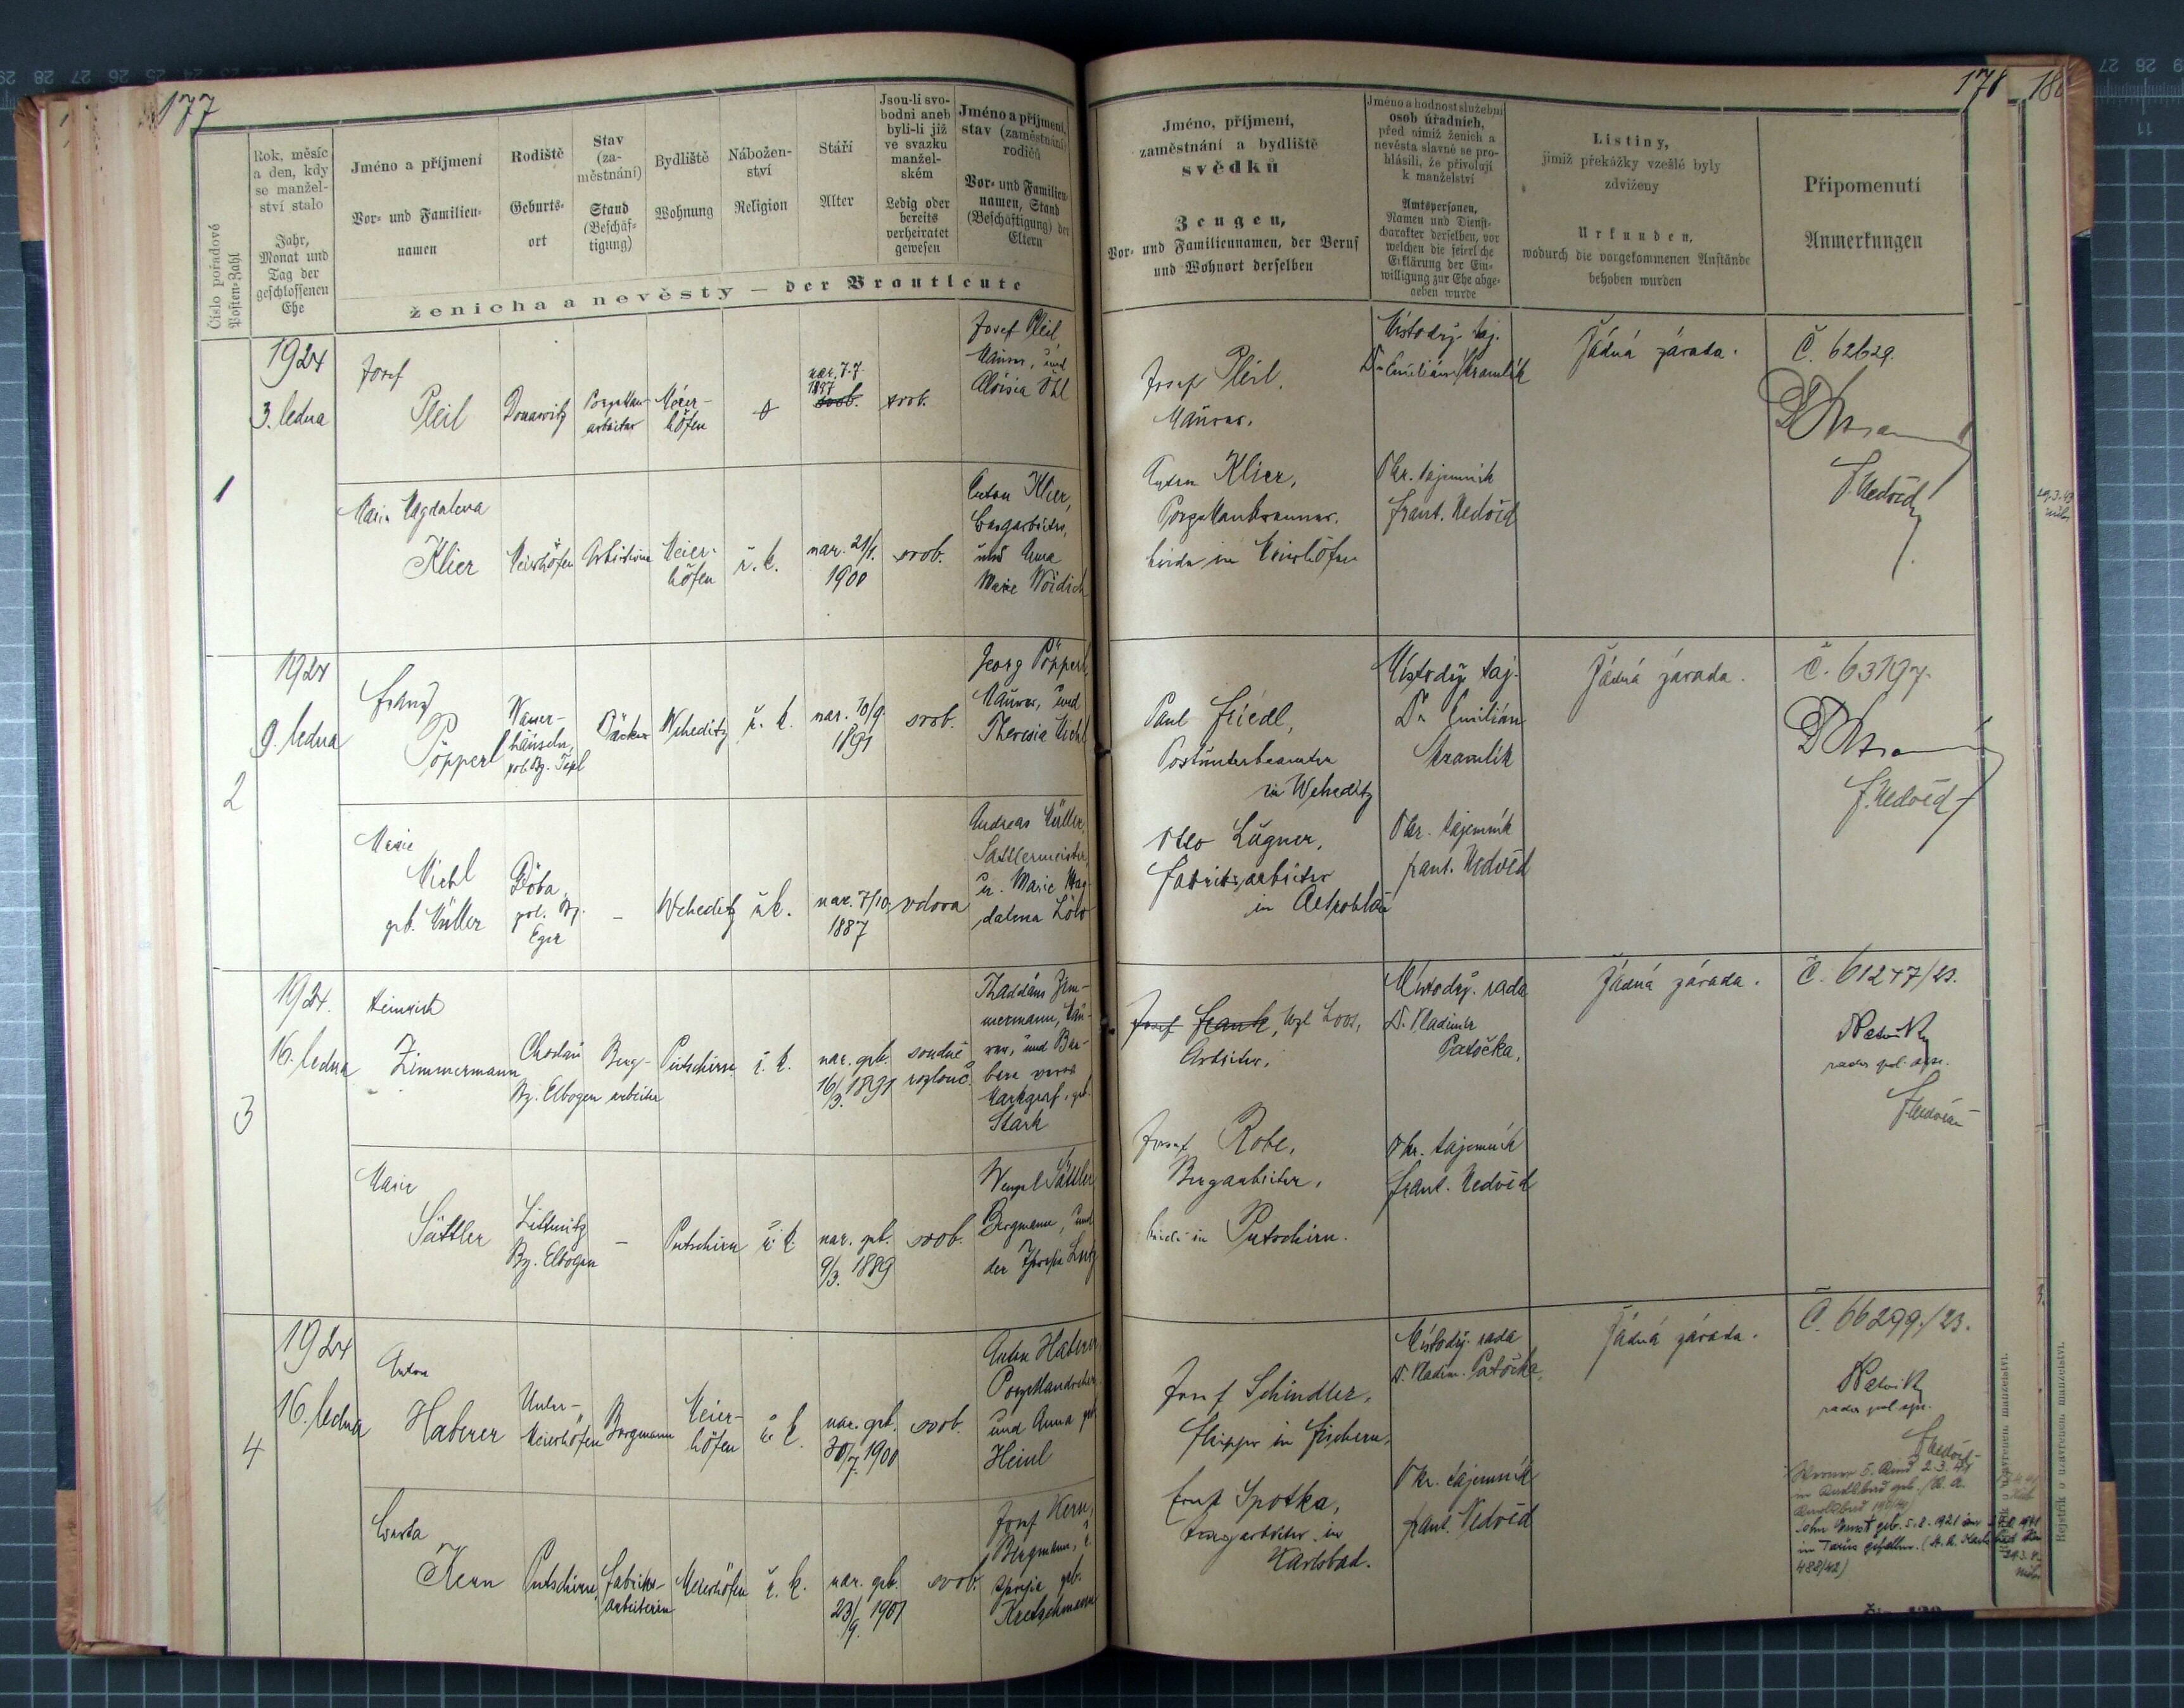 177
Číslo pořadové
Posten-Zahl
Rok, měsíc
a den, kdy
se manžel-
ství stalo
Jahr,
Monat und
Tag der
geschlossenen
Ehe
Jméno a příjmení
Vor- und Familien-
namen
Rodiště
Geburts-
ort
Stav
(za-
městnání)
Stand
(Beschäf-
tigung)
Bydliště
Wohnung
Nábožen-
ství
Religion
Stáří
Alter
Jsou-li svo-
bodni aneb
byli-li již
ve svazku
manžel-
ském
Ledig oder
bereits
verheiratet
gewesen
Jméno a příjmení,
stav (zaměstnání)
rodičů
Vor- und Familien-
namen, Stand
(Beschäftigung) der
Eltern
ženicha a nevěsty – der Brautleute
1
1924
3. ledna
Josef
Pleil
Donawitz
Porzellan-
arbeiter
Meier-
höfen
nar. 7.7.
1897
svob.
svob.
Josef Pleil
Maurer, und
Aloisia Öhl
Maria Magdalena
Klier
Meierhöfen
Arbeiterin
Meier-
höfen
ř. k.
nar. 21/1.
1900
svob.
Anton Klier,
Bergarbeiter,
und Anna
Marie Woidich
2
1924
9. ledna
Franz
Pöpperl
Wasser-
häuseln,
pol. Bz. Tepl
Bäcker
Weheditz
ř. k.
nar. 30/9.
1891
svob.
Georg Pöpperl
Maurer, und
Theresia Michl
Marie
Michl
geb. Müller
Döba,
pol. Bz.
Eger
–
Weheditz
ř. k.
nar. 7/10.
1887
vdova
Andreas Müller,
Sattlermeister,
u. Marie Mag-
dalena Löw
3
1924.
16. ledna
Heinrich
Zimmermann
Chodau
Bz. Elbogen
Berg-
arbeiter
Putschirn
ř. k.
nar. geb.
16/3. 1891
soudně
rozlouč.
Thaddäus Zim-
mermann, Mau-
rer, und Bar-
bara
Markgraf, geb.
Stark
Marie
Sattler
Littmitz
Bz. Elbogen
–
Putschirn
ř. k.
nar. geb.
9/3. 1889
svob.
Wenzel Sattler,
Bergmann, und
der Theresie Lutz
4
1924
16. ledna
Anton
Haberer
Unter-
Meierhöfen
Bergmann
Meier-
höfen
ř. k.
nar. geb.
30/7. 1900
svob.
Anton Haberer,
Porzellandreher
und Anna geb.
Heinl
Berta
Kern
Putschirn
Fabriks-
arbeiterin
Meierhöfen
ř. k.
nar. geb.
23/9. 1901
svob.
Josef Kern,
Bergmann, u.
Theresie geb.
Kretschmann
178
Jméno, příjmení,
zaměstnání a bydliště
svědků
Zeugen,
Vor- und Familiennamen, der Beruf
und Wohnort derselben
Jméno a hodnost služební
osob úřadních,
před nimiž ženich a
nevěsta slavně se pro-
hlásili, že přivolují
k manželství
Amtspersonen,
Namen und Dienst-
charakter derselben, vor
welchen die feierliche
Erklärung der Ein-
willigung zur Ehe abge-
geben wurde
Listiny,
jimiž překážky vzešlé byly
zdviženy
Urkunden,
wodurch die vorgekommenen Anstände
behoben wurden
Připomenutí
Anmerkungen
Josef Pleil.
Maurer.
Anton Klier,
Porzellanbrenner.
beide in Meierhöfen
Místodrž. taj.
Dr. Emilián Kramlík
Okr. tajemník
Frant. Nedvěd
Žádná závada.
Č. 62629.
F. Nedvěd
Paul Friedl,
Postunterbeamter
in Weheditz
Otto Lugner,
Fabriksarbeiter
in Altrohlau
Místodrž. taj.
Dr. Emilián
Kramlík
Okr. tajemník
Frant. Nedvěd
Žádná závada.
F. Nedvěd
Josef Frank, Wzl Loos,
Arbeiter,
Josef Kobe,
Bergarbeiter,
beide in Putschirn.
Místodrž. rada
Dr. Vladimír
Patočka,
Okr. tajemník
Frant. Nedvěd
Žádná závada.
Č. 61247/23.
rada pol. spr.
F. Nedvěd
Josef Schindler,
in Fischern,
Ernst Spotka,
Bergarbeiter in
Karlsbad.
Místodrž. rada
Dr. Vladim. Patočka,
Okr. tajemník
Frant. Nedvěd
Žádná závada.
Č. 66299/23.
rada pol. spr.
F. Nedvěd
Sohn Ernst geb. 5.8.1921
gefallen.
482/42)
Rejstřík o uzavřeném manželství.